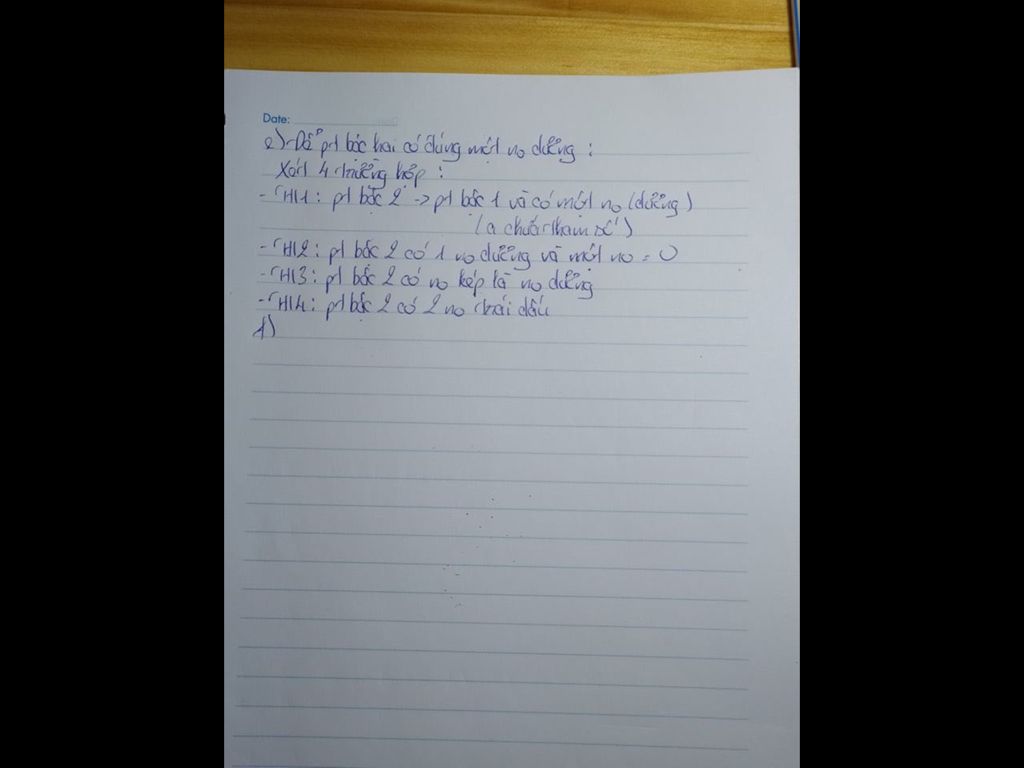 Date:
e) Để pt bậc hai có đúng một no dương :
Xét 4 trường hợp :
- TH1 : pt bậc 2 -> pt bậc 1 và có một no (dương)
(a chứa tham số)
- TH2 : pt bậc 2 có 1 no dương và một no = 0
- TH3 : pt bậc 2 có no kép là no dương
- TH4 : pt bậc 2 có 2 no trái dấu
f)